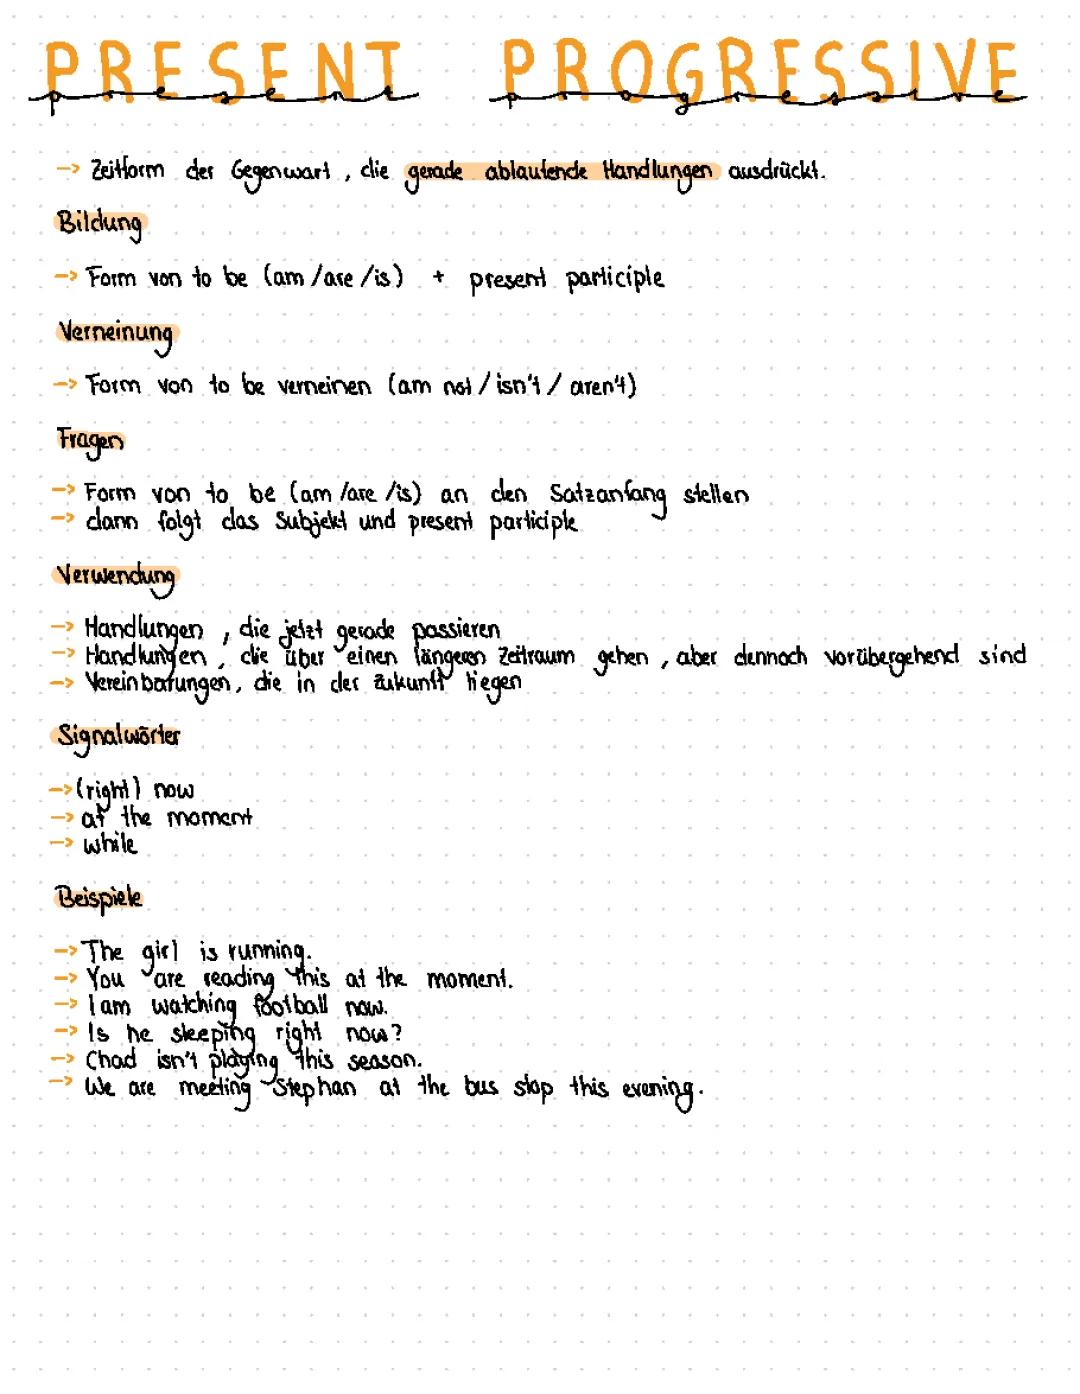 PRESENT PROGRESSIVE
present progressive
-> Zeitform der Gegenwart, die gerade ablaufende Handlungen ausdrückt.
Bildung
-> Form von to be (am/are/is) + present participle
Verneinung
-> Form von to be verneinen (am not/isn't/aren't)
Fragen
-> Form von to be (am/are/is) an den Satzanfang stellen
-> dann folgt das Subjekt und present participle
Verwendung
-> Handlungen, die jetzt gerade passieren
-> Handlungen, die über einen längeren Zeitraum gehen, aber dennoch vorübergehend sind
-> Vereinbarungen, die in der Zukunft liegen
Signalwörter
-> (right) now
-> at the moment
-> while
Beispiele
-> The girl is running.
-> You are reading this at the moment.
-> I am watching football now.
-> Is he sleeping right now?
-> Chad isn't playing this season.
-> We are meeting Stephan at the bus stop this evening.